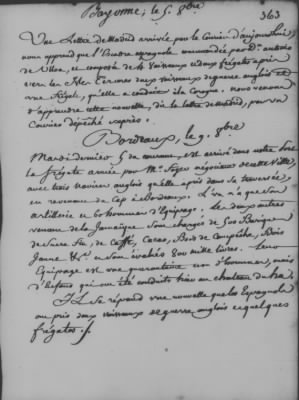 363
Bayonne, le 5. 8bre
Une Lettre de Madrid arrivée par le Courier d'aujourd'hui,
nous apprend que l'Escadre espagnole commandée par Dn. antonio
de Ulloa, et composée de 4 Vaisseaux et deux frégates après
vers les Isles deux vaisseaux de guerre anglois et
une frégate, qu'elle a conduit à la Corogne. nous venons
d'apprendre cette nouvelle, dit la lettre de Madrid, par un
Courier dépêché exprès.
Bordeaux, le 9. 8bre
Mardi dernier 5 du courant, est arrivé dans notre
la frégate armée par Mr. négociant de cette Ville,
avec trois navires anglois qu'elle a pris dans sa traversée,
en revenant du Cap à Bordeaux. L'un n'a que son
artillerie et 60 hommes d'Equipage; les deux autres
venant de la Jamaïque sont chargés de 500 Bariques
de Sucre, de Caffé, Cacao, Bois de Campêche, Bois
Jaune &c. et sont évalués 800 mille livres. Leur
Equipage est une quarantaine d'hommes,
qui ont été conduits hier au chateau du ha.
Il se répand une nouvelle que les Espagnols
ont pris deux vaisseaux de guerre anglois et quelques
frégates.